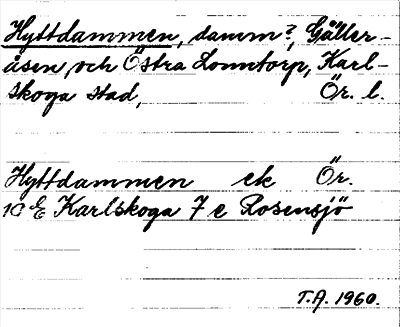 Hyttdammen, damm?, Gäller-
åsen och Östra Lonntorp, Karl-
skoga stad, Ör. l.
Hyttdammen ek Ör.
10 E Karlskoga 7 e Rosensjö
T.A. 1960.